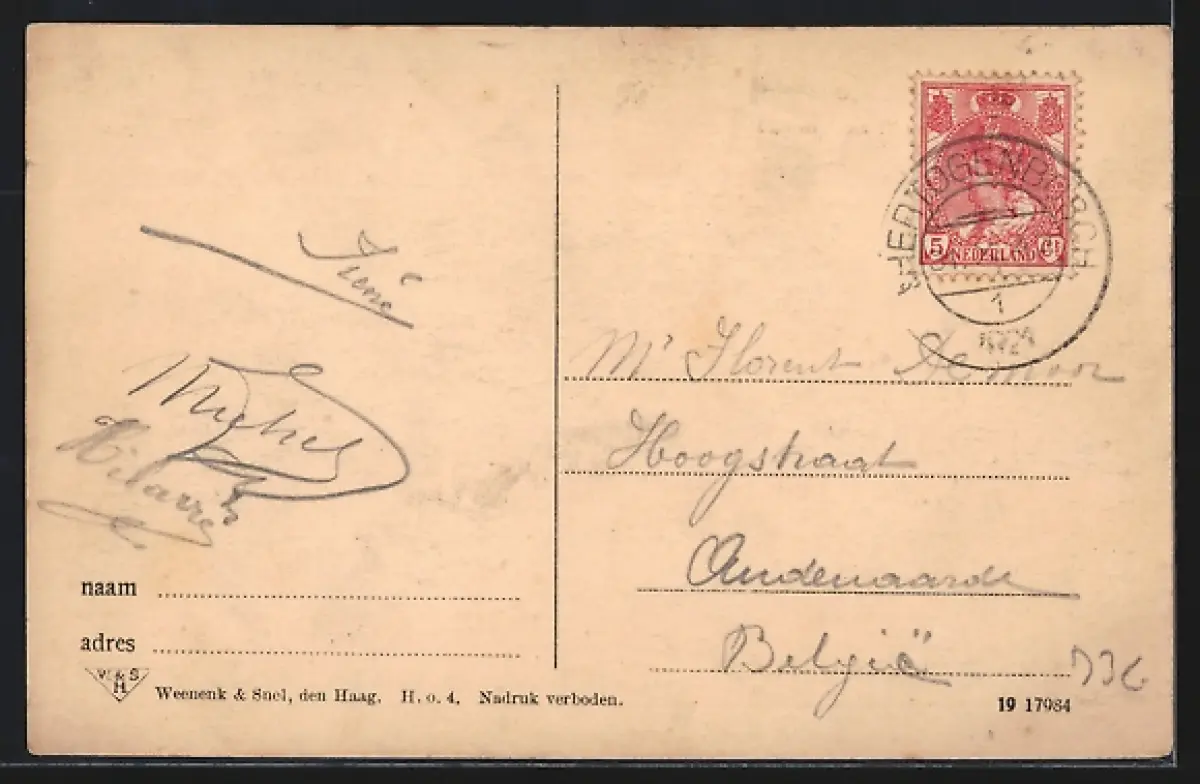 5 Ct
NEDERLAND
'S HERTOGENBOSCH
1
Mr Florent De Moor
Hoogstraat
Audenaarde
België
Michel
Hilaire
naam
adres
W & S
H
Weenenk & Snel, den Haag. H. o. 4. Nadruk verboden.
19 17984